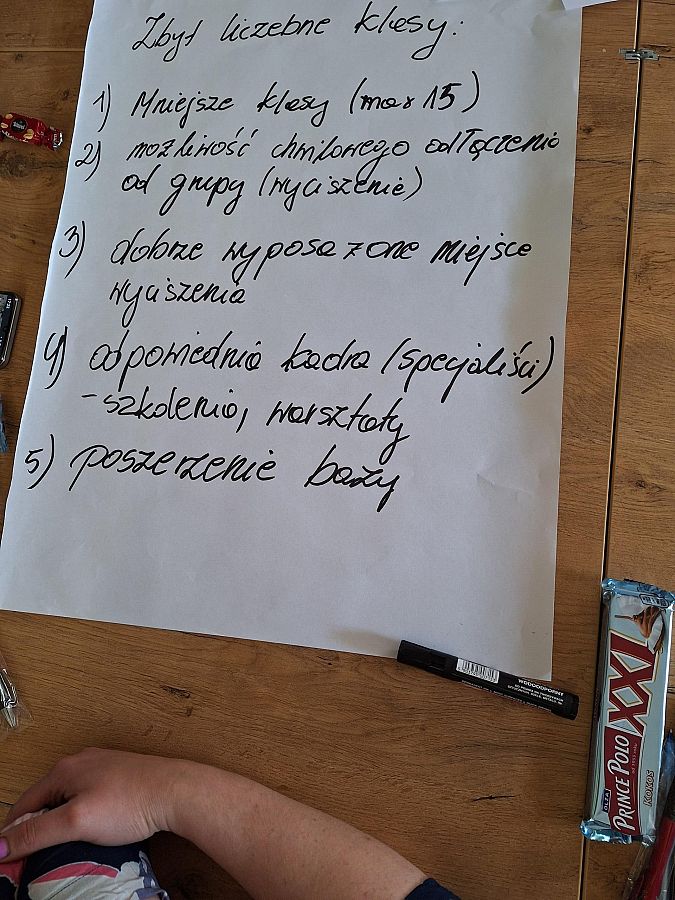 Zbyt liczebne klasy:
1) Mniejsze klasy (max 15)
2) możliwość chwilowego odłączenia
od grupy (wyciszenie)
3) dobrze wyposażone miejsce
wyciszenia
4) odpowiednia kadra (specjaliści)
- szkolenia, warsztaty
5) poszerzenie bazy
WODOODPORNY
OLZA
PRINCE POLO
XXL
KOKOS